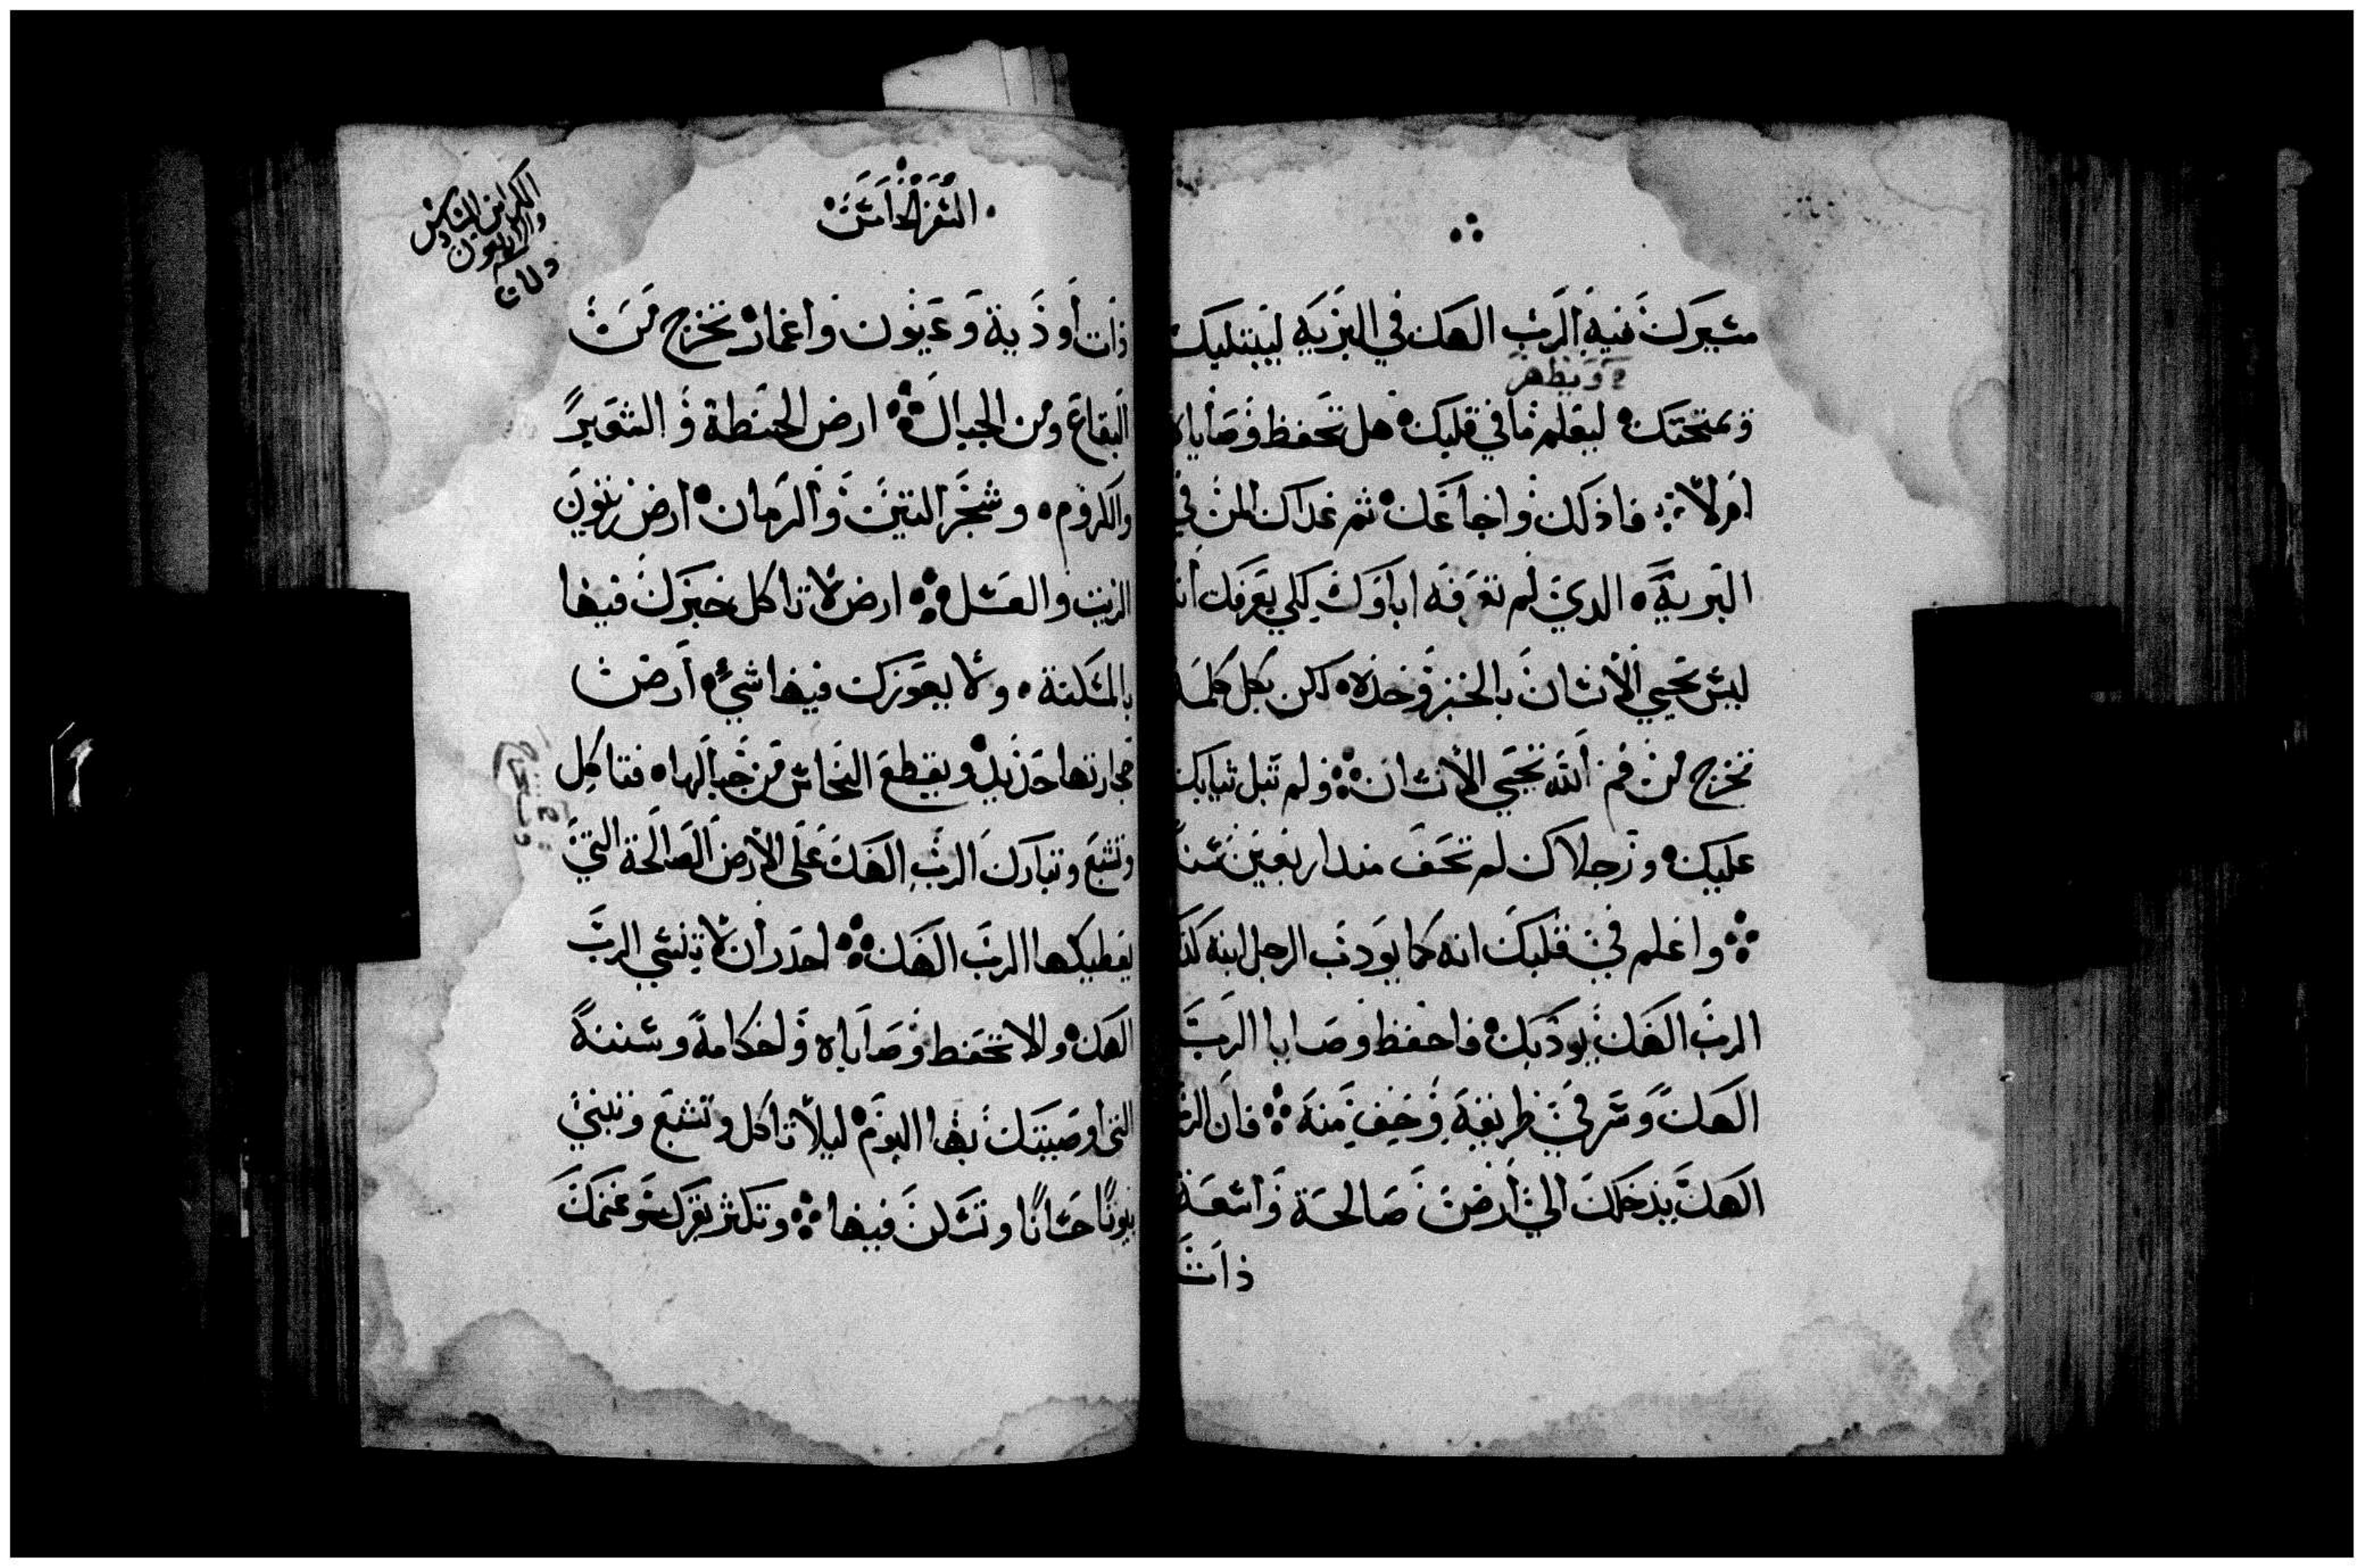 مسيرك فيه الرب الهك في البريه ليبتليك
ويظهر
ويمتحنك ليعلم ما في قلبك هل تحفظ وصاياه
ام لا فاذلك واجاعك ثم غداك المن في
البرية الدي لم تعرفه اباوك لكي يعرفك ان
ليس يحيي الانسان بالخبز وحده لكن بكل كلمة
تخرج من فم الله يحيي الانسان ولم تبل ثيابك
عليك ورجلاك لم تحف مند اربعين سنة
واعلم في قلبك انه كما يودب الرجل ابنه كدا
الرب الهك يودبك فاحفظ وصايا الرب
الهك وسر في طريقه وخف منه فان الرب
الهك يدخلك الي ارض صالحة واسعة
ذات
السفر الخامس
الكراس السادس
والاربعون
ذات أودية وعيون واغمار تخرج من
البقاع ومن الجبال ارض الحنطة والشعير
والكروم وشجر التين والرمان ارض زيتون
الزيت والعسل ارض لا تاكل خبزك فيها
بالمسكنة ولا يعوزك فيها شيء ارض
حجارتها حديد ويقطع النحاس من جبالها فتاكل
وتشبع وتبارك الرب الهك على الارض الصالحة التي
يعطيكها الرب الهك احدر ان لا تنسي الرب
الهك والا تحفظ وصاياه واحكامه وسننه
التي اوصيتك بها اليوم ليلا تاكل وتشبع وتبني
بيوتا حسانا وتسكن فيها وتكثر بقرك وغنمك